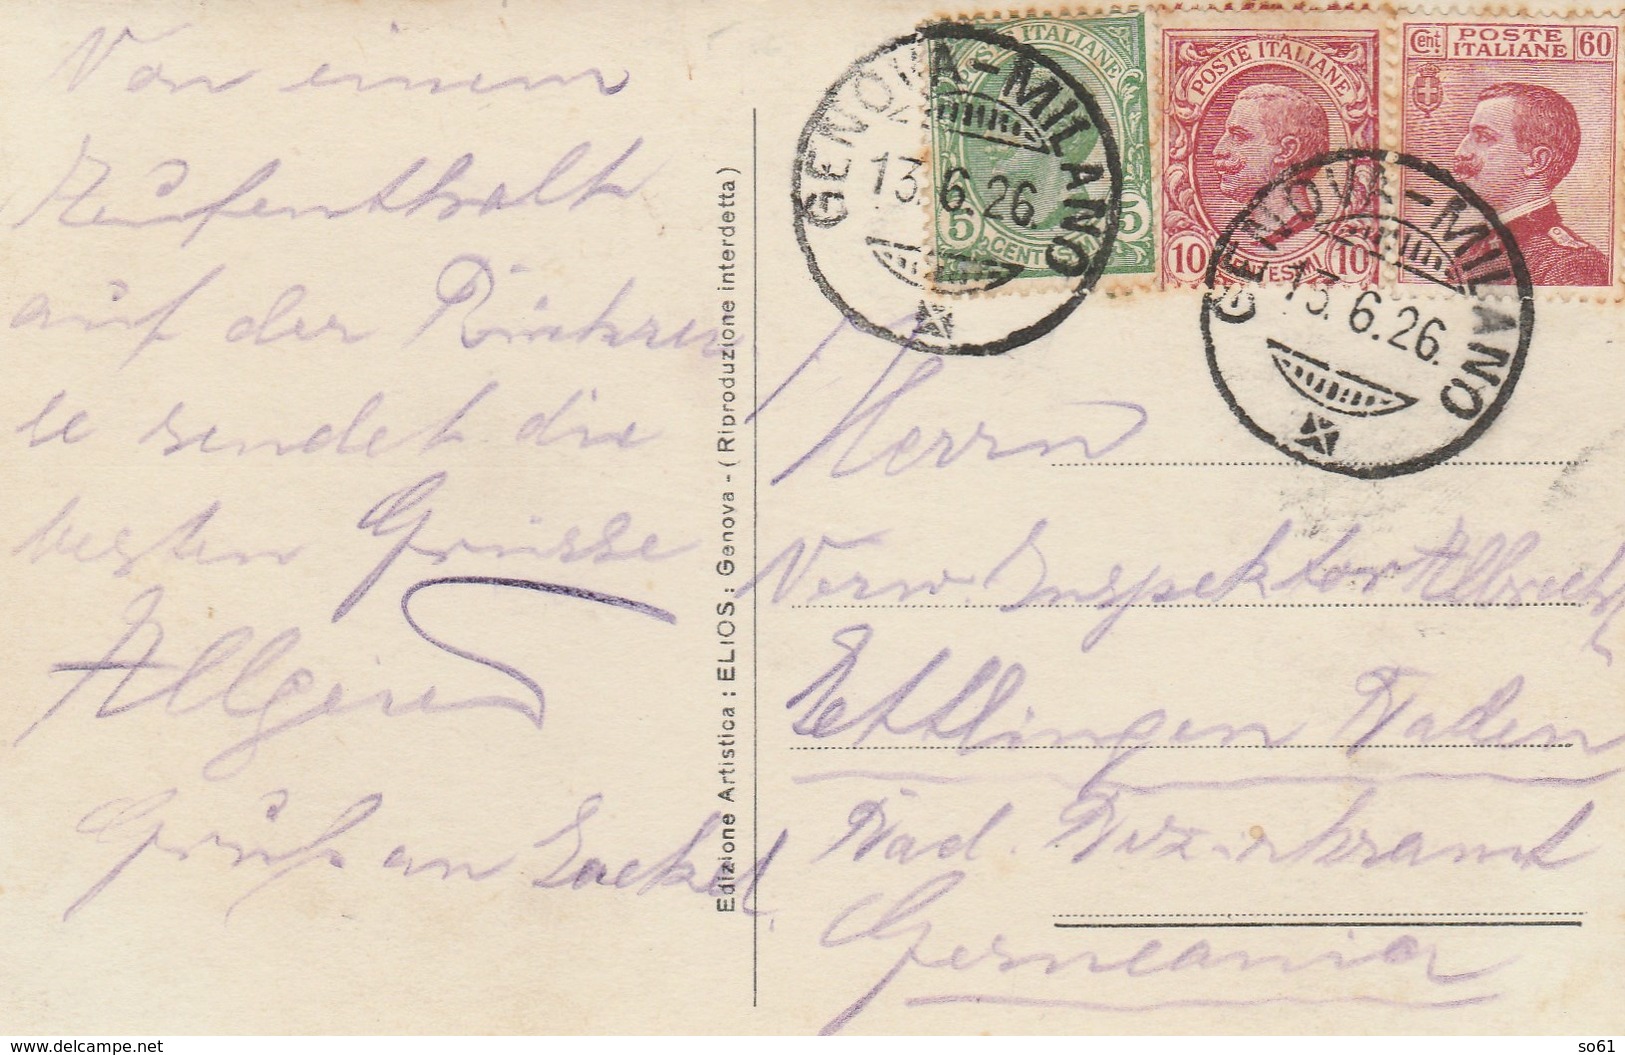 Von einem
Aufenthalt
auf der Rückrei
se sendet die
besten Grüsse
Allgeier
Gruß an Sackel.
Edizione Artistica : ELIOS : Genova - (Riproduzione interdetta)
POSTE ITALIANE
5 CENTESIMI 5
POSTE ITALIANE
10 CENTESIMI 10
Cent. POSTE ITALIANE 60
GENOVA-MILANO
13.6.26.
GENOVA-MILANO
13.6.26.
Herrn
Verw. Inspektor Albrecht
Ettlingen Baden
Bad. Bezirksamt
Germania
www.delcampe.net
so61